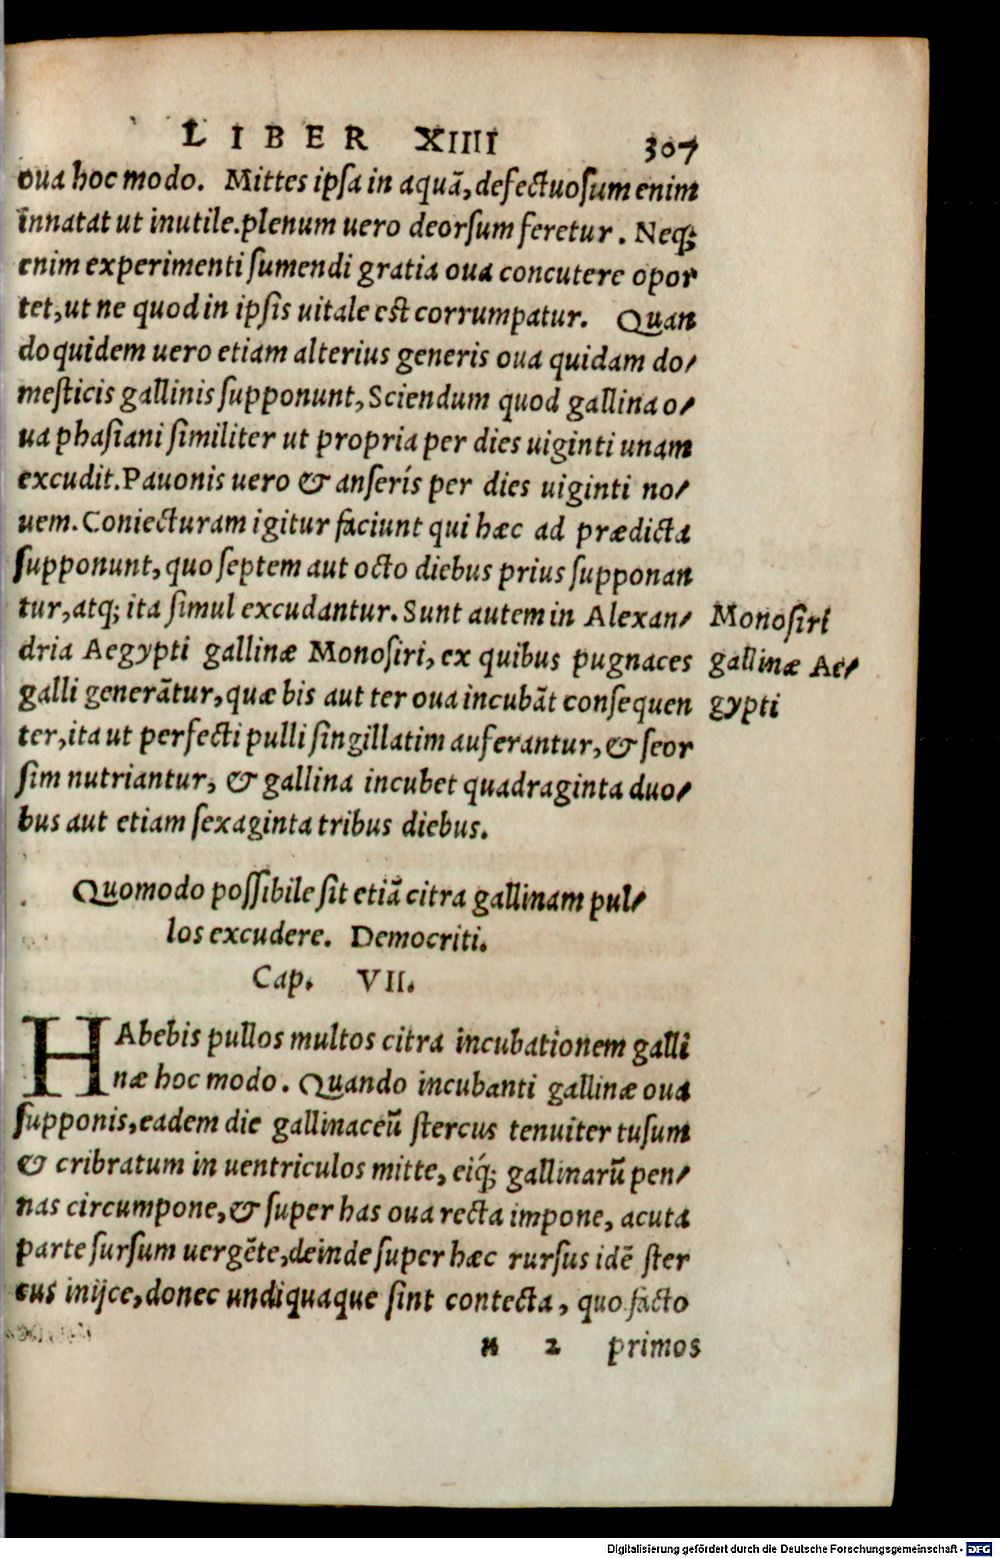 LIBER XIIII 307
oua hoc modo. Mittes ipſa in aquã, defectuoſum enim
innatat ut inutile.plenum uero deorſum feretur. Neq;
enim experimenti ſumendi gratia oua concutere opor
tet, ut ne quod in ipſis uitale eſt corrumpatur. Quan
do quidem uero etiam alterius generis oua quidam do-
meſticis gallinis ſupponunt, Sciendum quod gallina o-
ua phaſiani ſimiliter ut propria per dies uiginti unam
excudit. Pauonis uero & anſerís per dies uiginti no-
uem. Coniecturam igitur faciunt qui hæc ad prædicta
ſupponunt, quo ſeptem aut octo diebus prius ſupponan
tur, atq; ita ſimul excudantur. Sunt autem in Alexan-
dria Aegypti gallinæ Monoſiri, ex quibus pugnaces
galli generãtur, quæ bis aut ter oua incubãt conſequen
ter, ita ut perfecti pulli ſingillatim auferantur, & ſeor
ſim nutriantur, & gallina incubet quadraginta duo-
bus aut etiam ſexaginta tribus diebus.
Monoſiri
gallinæ Ae-
gypti
Quomodo poſſibile ſit etiã citra gallinam pul-
los excudere. Democriti.
Cap. VII.
HAbebis pullos multos citra incubationem galli
næ hoc modo. Quando incubanti gallinæ oua
ſupponis, eadem die gallinaceũ ſtercus tenuiter tuſum
& cribratum in uentriculos mitte, eiq́; gallinarũ pen-
nas circumpone, & ſuper has oua recta impone, acuta
parte ſurſum uergẽte, deinde ſuper hæc rurſus idẽ ſter
cus inijce, donec undiquaque ſint contecta, quo facto
n 2 primos
Digitalisierung gefördert durch die Deutsche Forschungsgemeinschaft - DFG